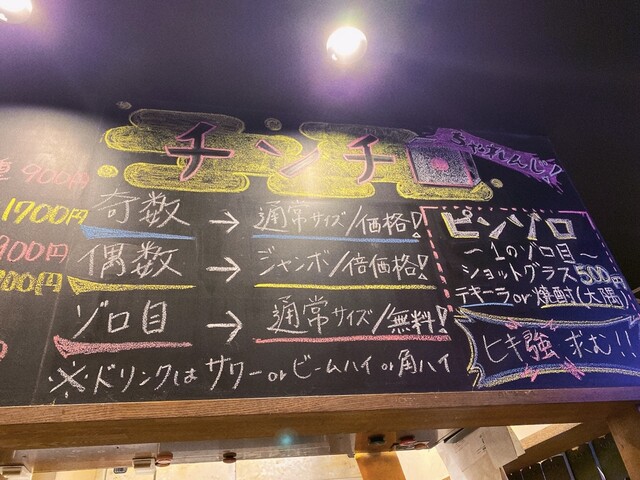 チンチロ
ちゃれんじ!
重 900円
1700円
900円
700円
奇数 → 通常サイズ/価格!
偶数 → ジャンボ/倍価格!
ゾロ目 → 通常サイズ/無料!
※ドリンクは サワー or ビームハイ or 角ハイ
ピンゾロ
～1のゾロ目～
ショットグラス500円
テキーラor焼酎(大隅)
ヒキ強 求む!!